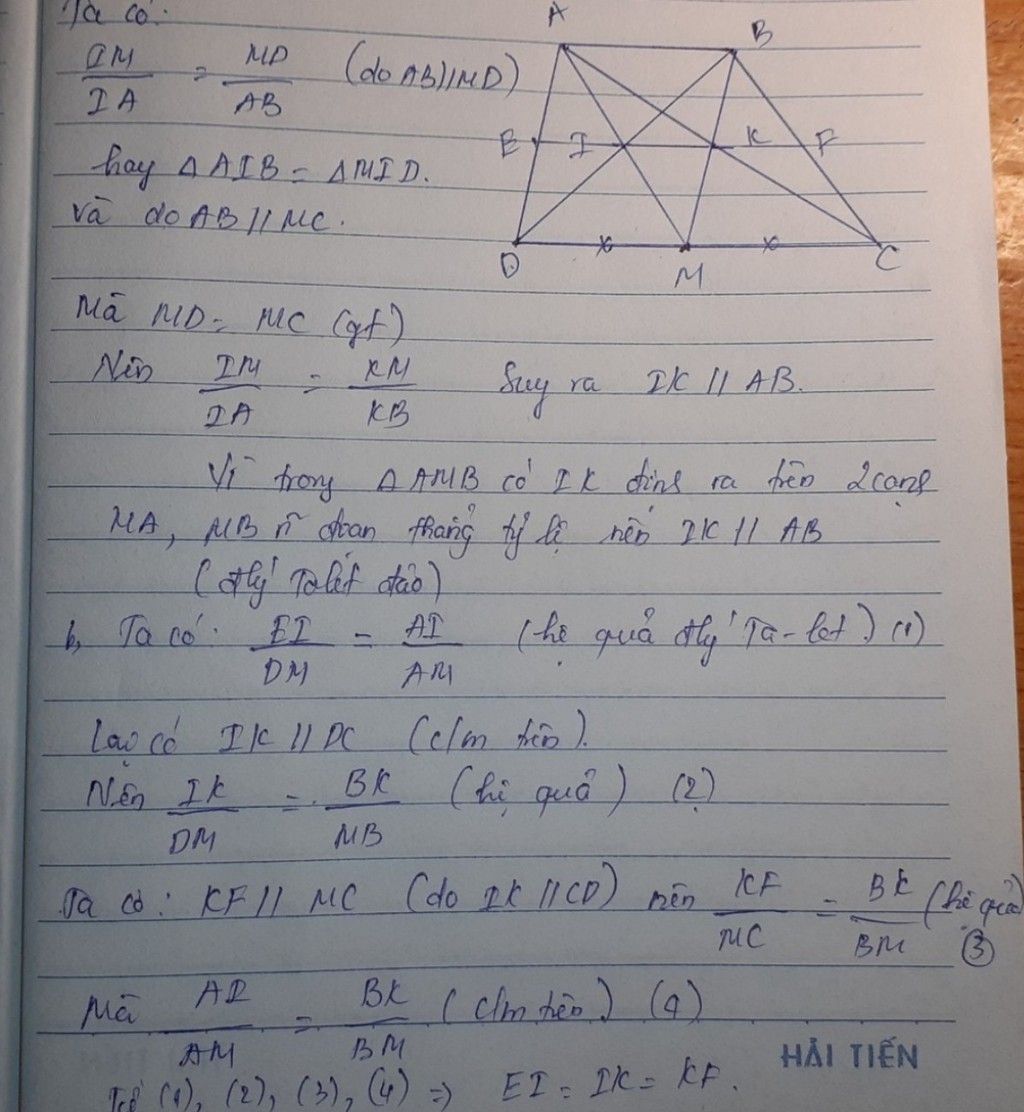 Ta có:
IM/IA = MD/AB (do AB//MD)
hay △AIB = △MID.
và do AB // MC.
A
B
E
I
K
F
D
M
C
Mà MD = MC (gt)
Nên IM/IA = KM/KB Suy ra IK // AB.
Vì trong △AMB có IK định ra trên 2 cạnh
MA, MB n~ đoạn thẳng tỷ lệ nên IK // AB
(đlý Talét đảo)
b, Ta có: EI/DM = AI/AM (hệ quả đlý Ta-let) (1)
Lại có IK // DC (c/m trên).
Nên IK/DM = BK/MB (hệ quả) (2)
Ta có: KF // MC (do IK // CD) nên KF/MC = BK/BM (hệ quả)
(3)
Mà AI/AM = BK/BM (c/m trên) (4)
HẢI TIẾN
Từ (1), (2), (3), (4) => EI = IK = KF.